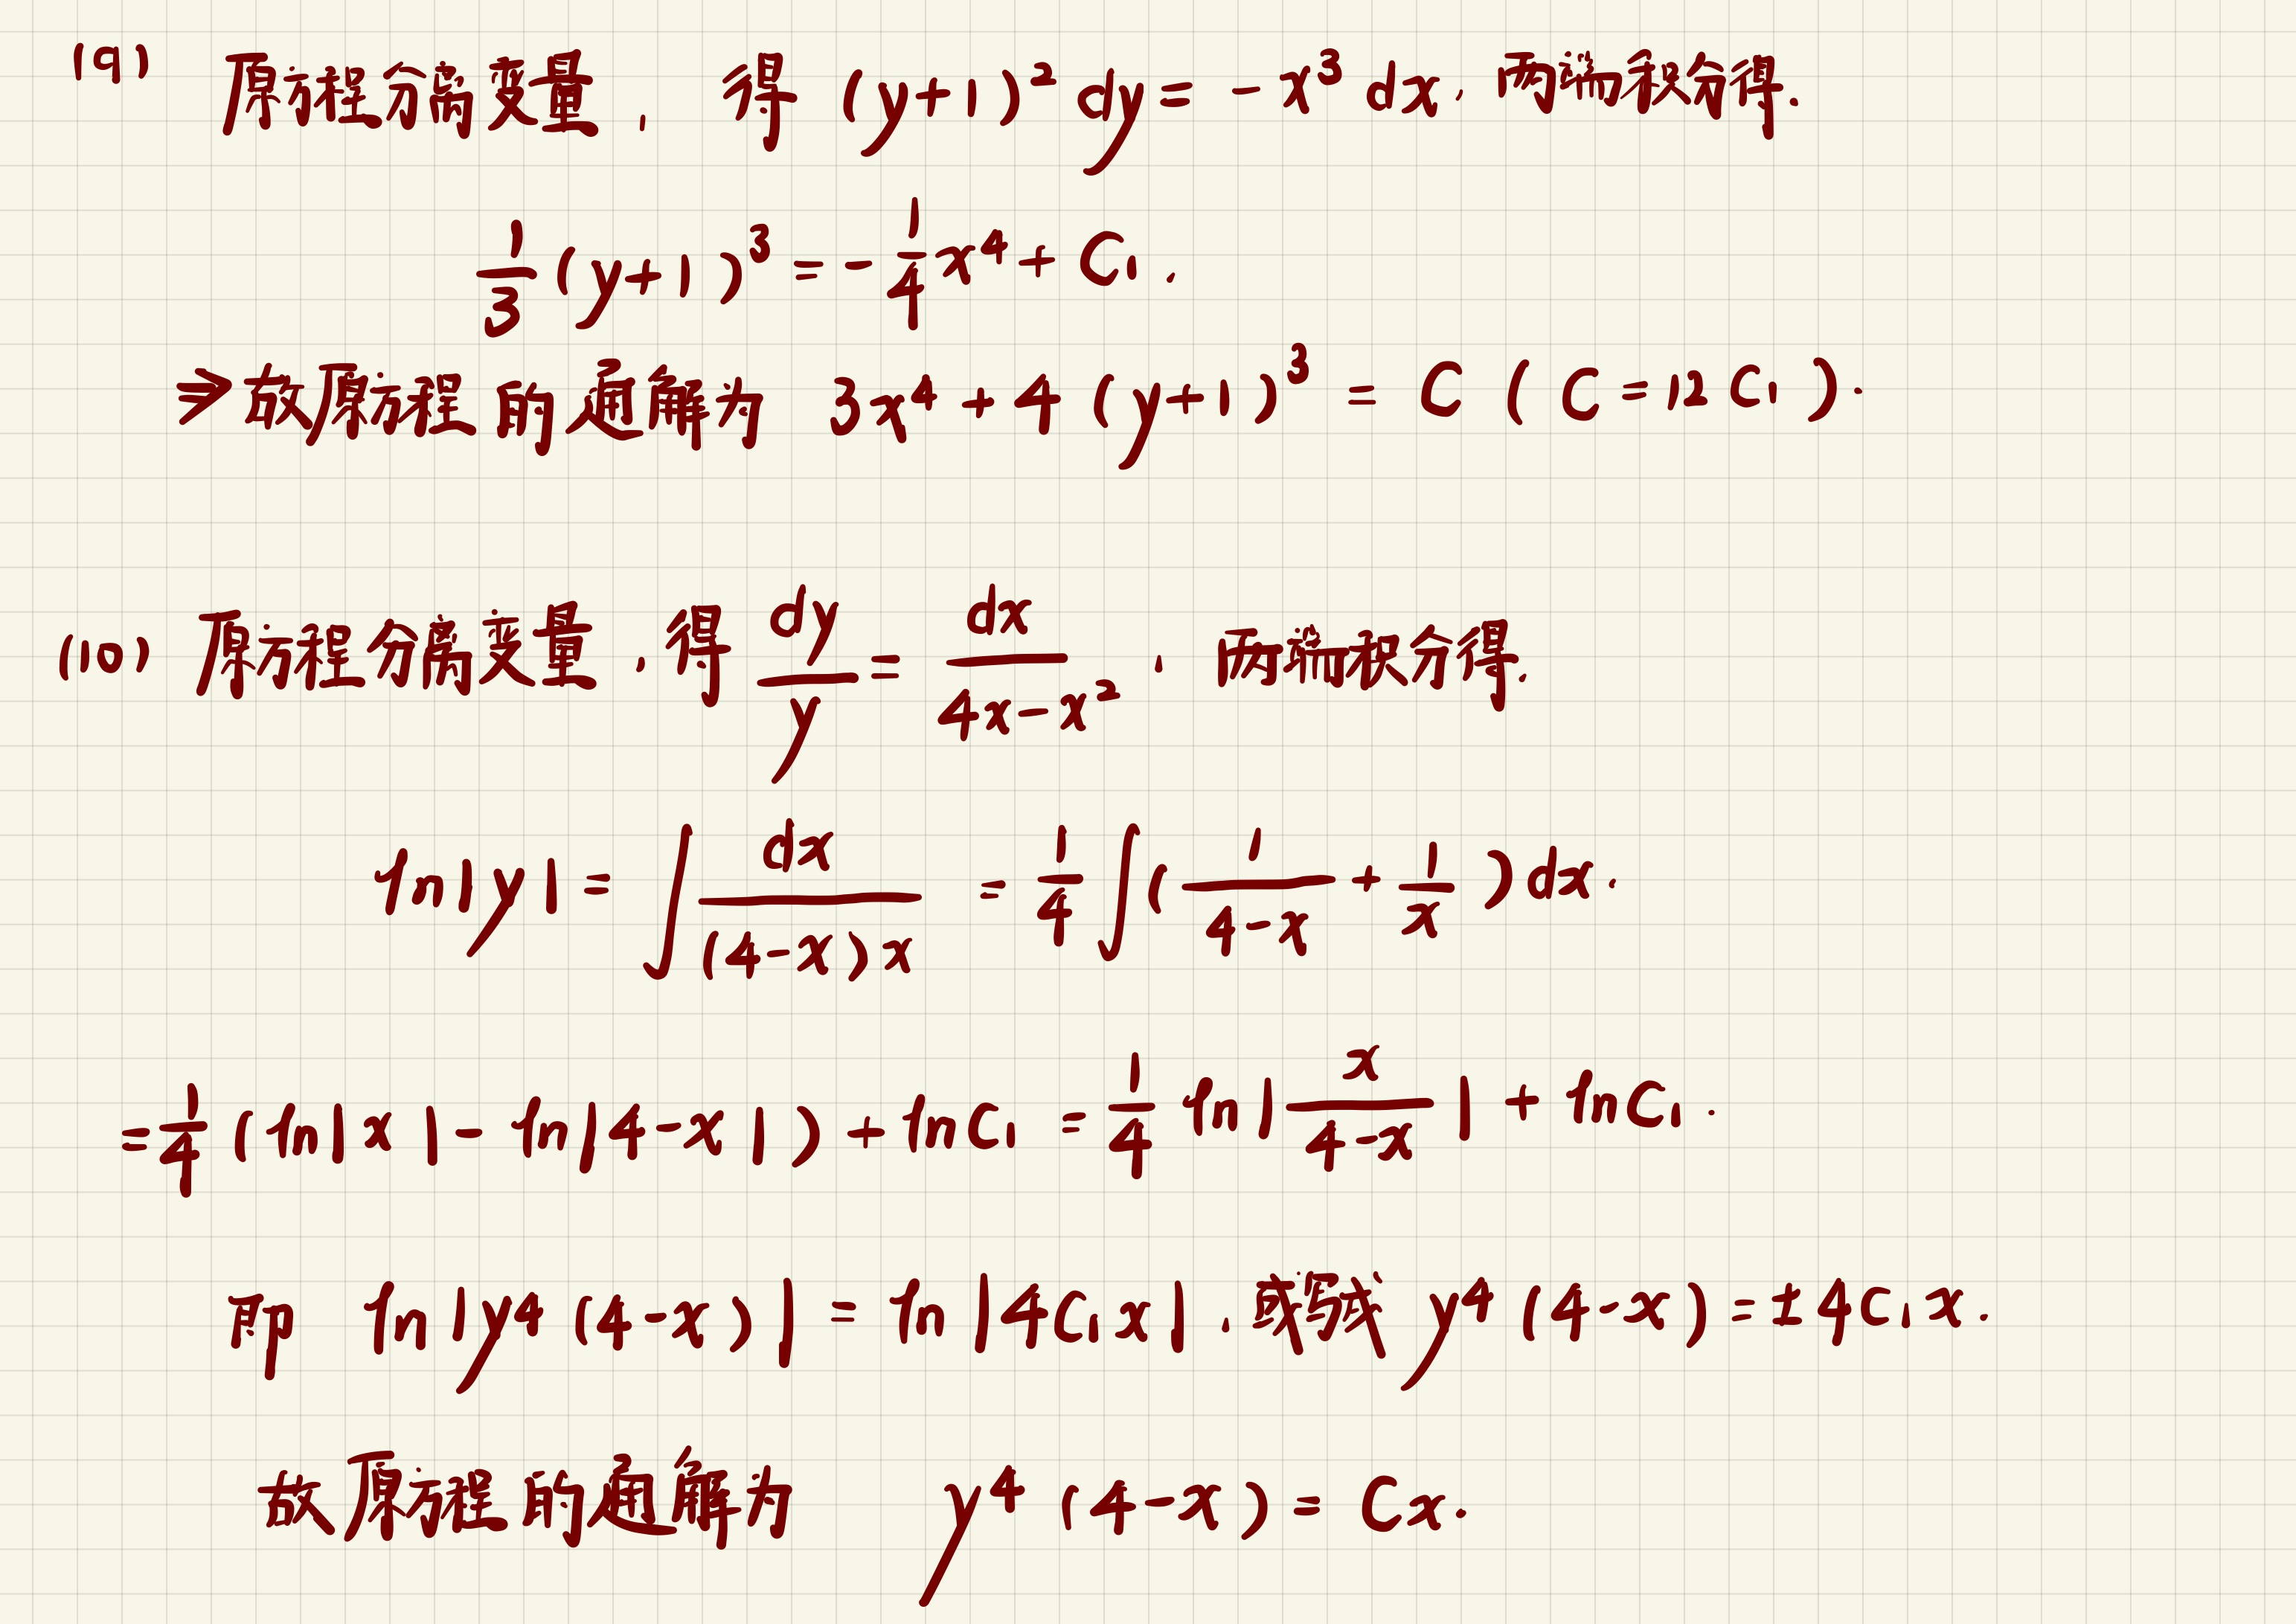 (9) 原方程分离变量, 得 (y+1)² dy = -x³ dx, 两端积分得.
1/3 (y+1)³ = - 1/4 x⁴ + C₁.
⇒ 故原方程的通解为 3x⁴ + 4 (y+1)³ = C ( C = 12C₁ ).
(10) 原方程分离变量, 得 dy/y = dx/(4x-x²), 两端积分得.
ln|y| = ∫ dx/((4-x)x) = 1/4 ∫ ( 1/(4-x) + 1/x ) dx.
= 1/4 ( ln|x| - ln|4-x| ) + lnC₁ = 1/4 ln| x/(4-x) | + lnC₁.
即 ln|y⁴(4-x)| = ln|4C₁x|. 或写成 y⁴(4-x) = ±4C₁x.
故原方程的通解为 y⁴(4-x) = Cx.